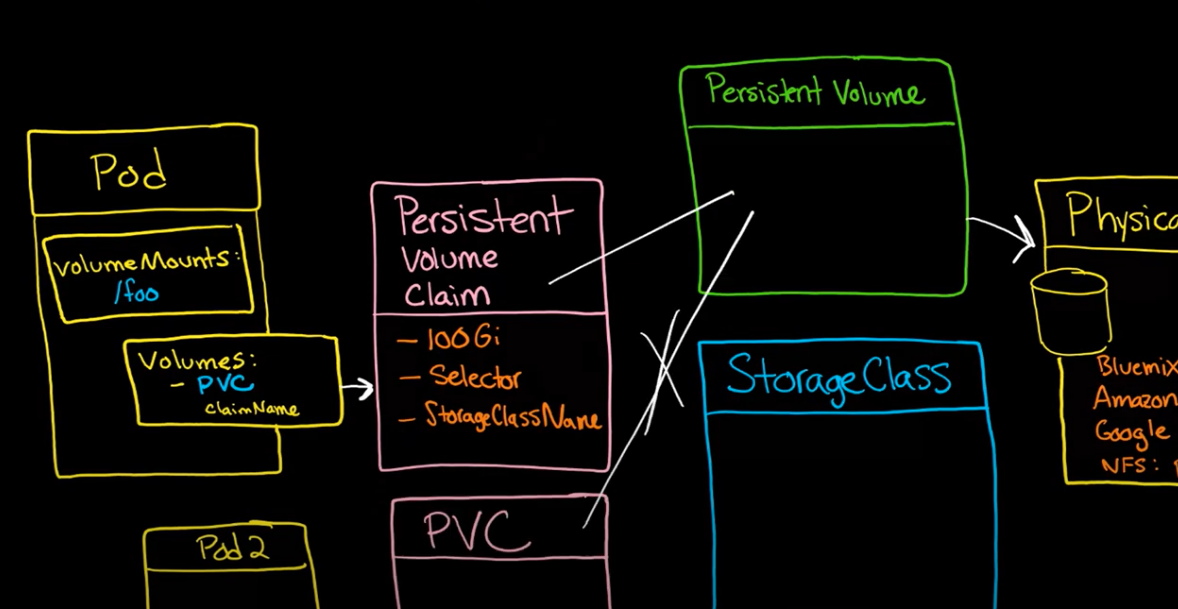 Pod
volumeMounts:
/foo
Volumes:
- PVC
claimName
Persistent
Volume
Claim
- 100Gi
- Selector
- StorageClassName
Persistent Volume
StorageClass
Bluemix
Amazon
Google
NFS:
Pod 2
PVC